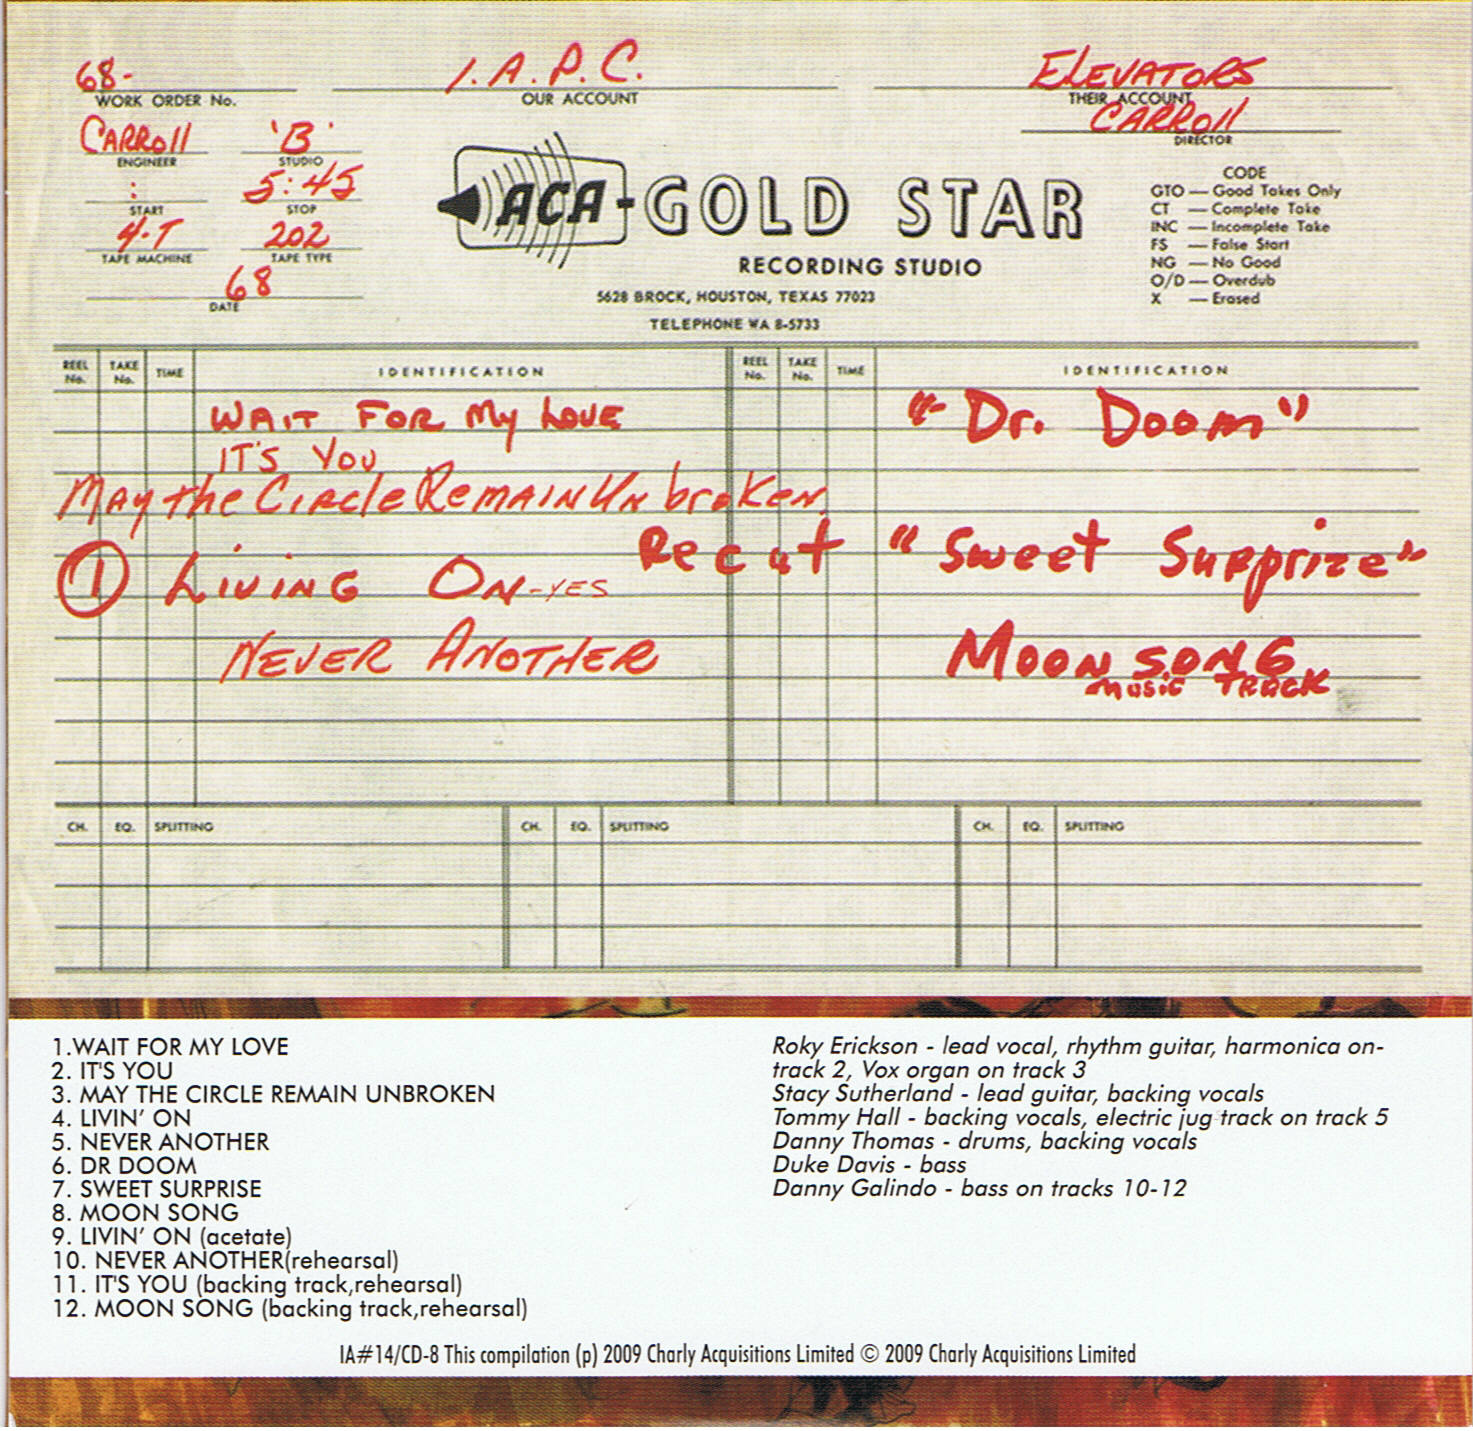 68-
WORK ORDER No.
I.A.P.C.
OUR ACCOUNT
ELEVATORS
THEIR ACCOUNT
CARROll
DIRECTOR
CARROll
ENGINEER
'B'
STUDIO
:
START
5:45
STOP
4-T
TAPE MACHINE
202
TAPE TYPE
68
DATE
ACA-GOLD STAR
RECORDING STUDIO
5628 BROCK, HOUSTON, TEXAS 77023
TELEPHONE WA 8-5733
CODE
GTO — Good Takes Only
CT — Complete Take
INC — Incomplete Take
FS — False Start
NG — No Good
O/D — Overdub
X — Erased
REEL No. TAKE No. TIME IDENTIFICATION REEL No. TAKE No. TIME IDENTIFICATION
WAIT FOR My LOVE
IT'S YOU
MAy the CiRcle REMAIN UNbroKen.
① LiViNG ON-YES
NEVER ANOTHER
"Dr. Doom"
Recut "Sweet Surprize"
MOON SONG
MUSIC TRACK
CH. EQ. SPLITTING CH. EQ. SPLITTING CH. EQ. SPLITTING
1.WAIT FOR MY LOVE
2. IT'S YOU
3. MAY THE CIRCLE REMAIN UNBROKEN
4. LIVIN' ON
5. NEVER ANOTHER
6. DR DOOM
7. SWEET SURPRISE
8. MOON SONG
9. LIVIN' ON (acetate)
10. NEVER ANOTHER(rehearsal)
11. IT'S YOU (backing track,rehearsal)
12. MOON SONG (backing track,rehearsal)
Roky Erickson - lead vocal, rhythm guitar, harmonica on-
track 2, Vox organ on track 3
Stacy Sutherland - lead guitar, backing vocals
Tommy Hall - backing vocals, electric jug track on track 5
Danny Thomas - drums, backing vocals
Duke Davis - bass
Danny Galindo - bass on tracks 10-12
IA#14/CD-8 This compilation (p) 2009 Charly Acquisitions Limited © 2009 Charly Acquisitions Limited